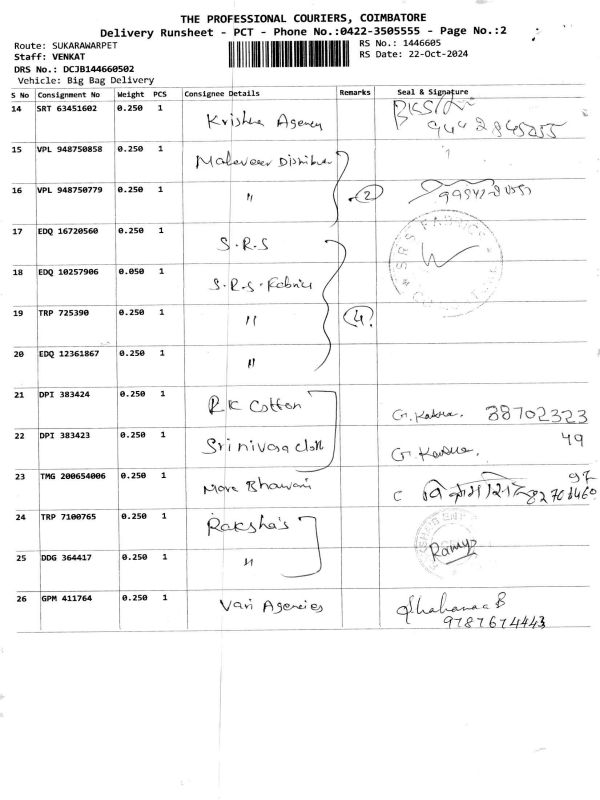 THE PROFESSIONAL COURIERS, COIMBATORE
Delivery Runsheet - PCT - Phone No.:0422-3505555 - Page No.:2
Route: SUKARAWARPET
RS No.: 1446605
Staff: VENKAT
RS Date: 22-Oct-2024
DRS No.: DCJB144660502
Vehicle: Big Bag Delivery
S No Consignment No Weight PCS Consignee Details Remarks Seal & Signature
14 SRT 63451602 0.250 1 Krishna Agency
15 VPL 948750858 0.250 1 Mahaveer
16 VPL 948750779 0.250 1 " 2
17 EDQ 16720560 0.250 1 S.R.S
18 EDQ 10257906 0.050 1 S.R.S. Fabrics
19 TRP 725390 0.250 1 " 4
20 EDQ 12361867 0.250 1 "
21 DPI 383424 0.250 1 RK Cotton 38702323
22 DPI 383423 0.250 1 Srinivasa cloth 49
23 TMG 200654006 0.250 1 Bhavani
24 TRP 7100765 0.250 1 Raksha's
25 DDG 364417 0.250 1 " Ramya
26 GPM 411764 0.250 1 Vari Agencies
9787674443